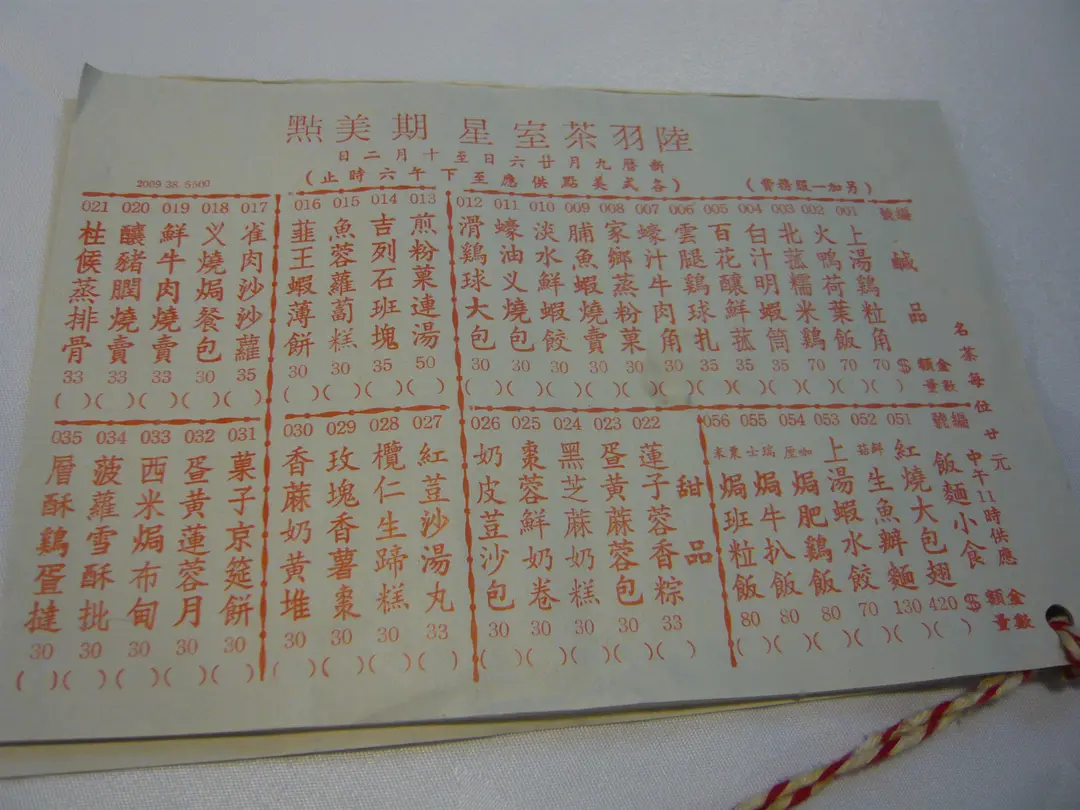 陸羽茶室 星期美點
新曆九月廿六日至十月二日
(各式美點供應至下午六時止)
(另加一服務費)
2009 38. 5500
名茶每位廿元
中午11時供應
編號 鹹品 $金額 數量
001 上湯鷄粒角 70 ( )
002 火鴨荷葉飯 70 ( )
003 北菰糯米鷄 70 ( )
004 白汁明蝦筒 35 ( )
005 百花釀鮮菰 35 ( )
006 雲腿鷄球扎 35 ( )
007 蠔汁牛肉角 30 ( )
008 家鄉蒸粉菓 30 ( )
009 脯魚蝦燒賣 30 ( )
010 淡水鮮蝦餃 30 ( )
011 蠔油义燒包 30 ( )
012 滑鷄球大包 30 ( )
013 煎粉菓連湯 50 ( )
014 吉列石班塊 35 ( )
015 魚蓉蘿蔔糕 30 ( )
016 韮王蝦薄餅 30 ( )
017 雀肉沙沙蘿 35 ( )
018 义燒焗餐包 30 ( )
019 鮮牛肉燒賣 33 ( )
020 釀豬膶燒賣 33 ( )
021 柱侯蒸排骨 33 ( )
編號 飯麵小食 $金額 數量
051 紅燒大包翅 420 ( )
052 鮮菇生魚辦麵 130 ( )
053 上湯蝦水餃 70 ( )
054 咖喱焗肥鷄飯 80 ( )
055 瑞士焗牛扒飯 80 ( )
056 粟米焗班粒飯 80 ( )
甜品
022 蓮子蓉香粽 33 ( )
023 蛋黃蔴蓉包 30 ( )
024 黑芝蔴奶糕 30 ( )
025 棗蓉鮮奶卷 30 ( )
026 奶皮荳沙包 30 ( )
027 紅荳沙湯丸 33 ( )
028 欖仁生蹄糕 30 ( )
029 玫瑰香薯棗 30 ( )
030 香蔴奶黃堆 30 ( )
031 菓子京筵餅 30 ( )
032 蛋黃蓮蓉月 30 ( )
033 西米焗布甸 30 ( )
034 菠蘿雪酥批 30 ( )
035 層酥鷄蛋撻 30 ( )